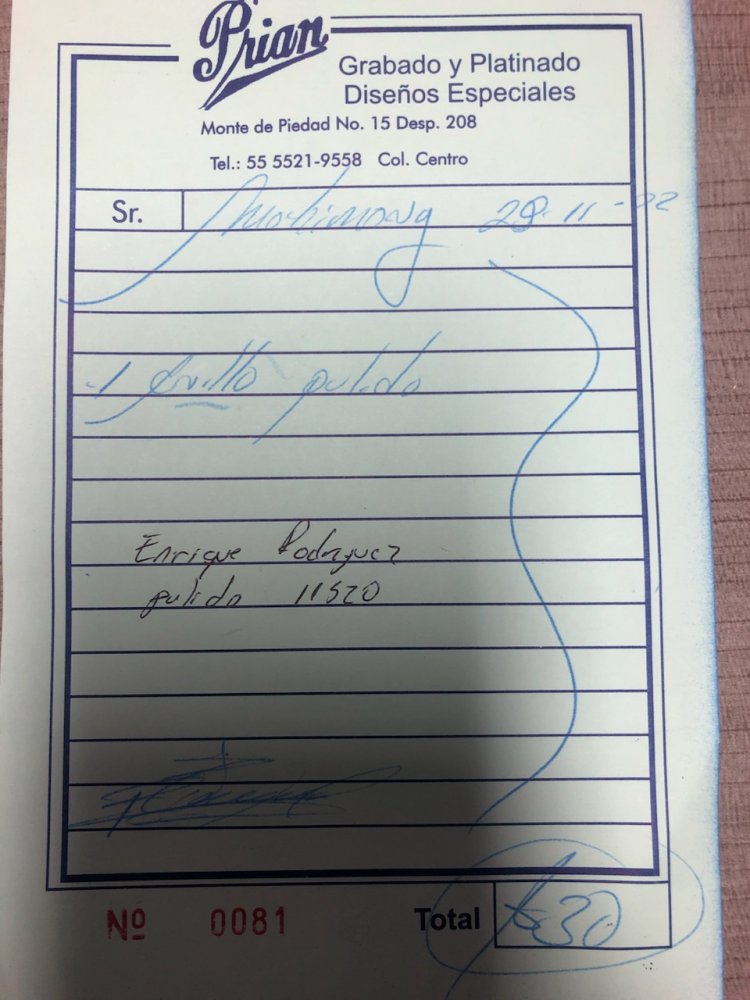 Prian
Grabado y Platinado
Diseños Especiales
Monte de Piedad No. 15 Desp. 208
Tel.: 55 5521-9558 Col. Centro
Sr. 28-11-22
1 Anillo pulido
Enrique Rodriguez
pulido 11520
Nº 0081 Total $30